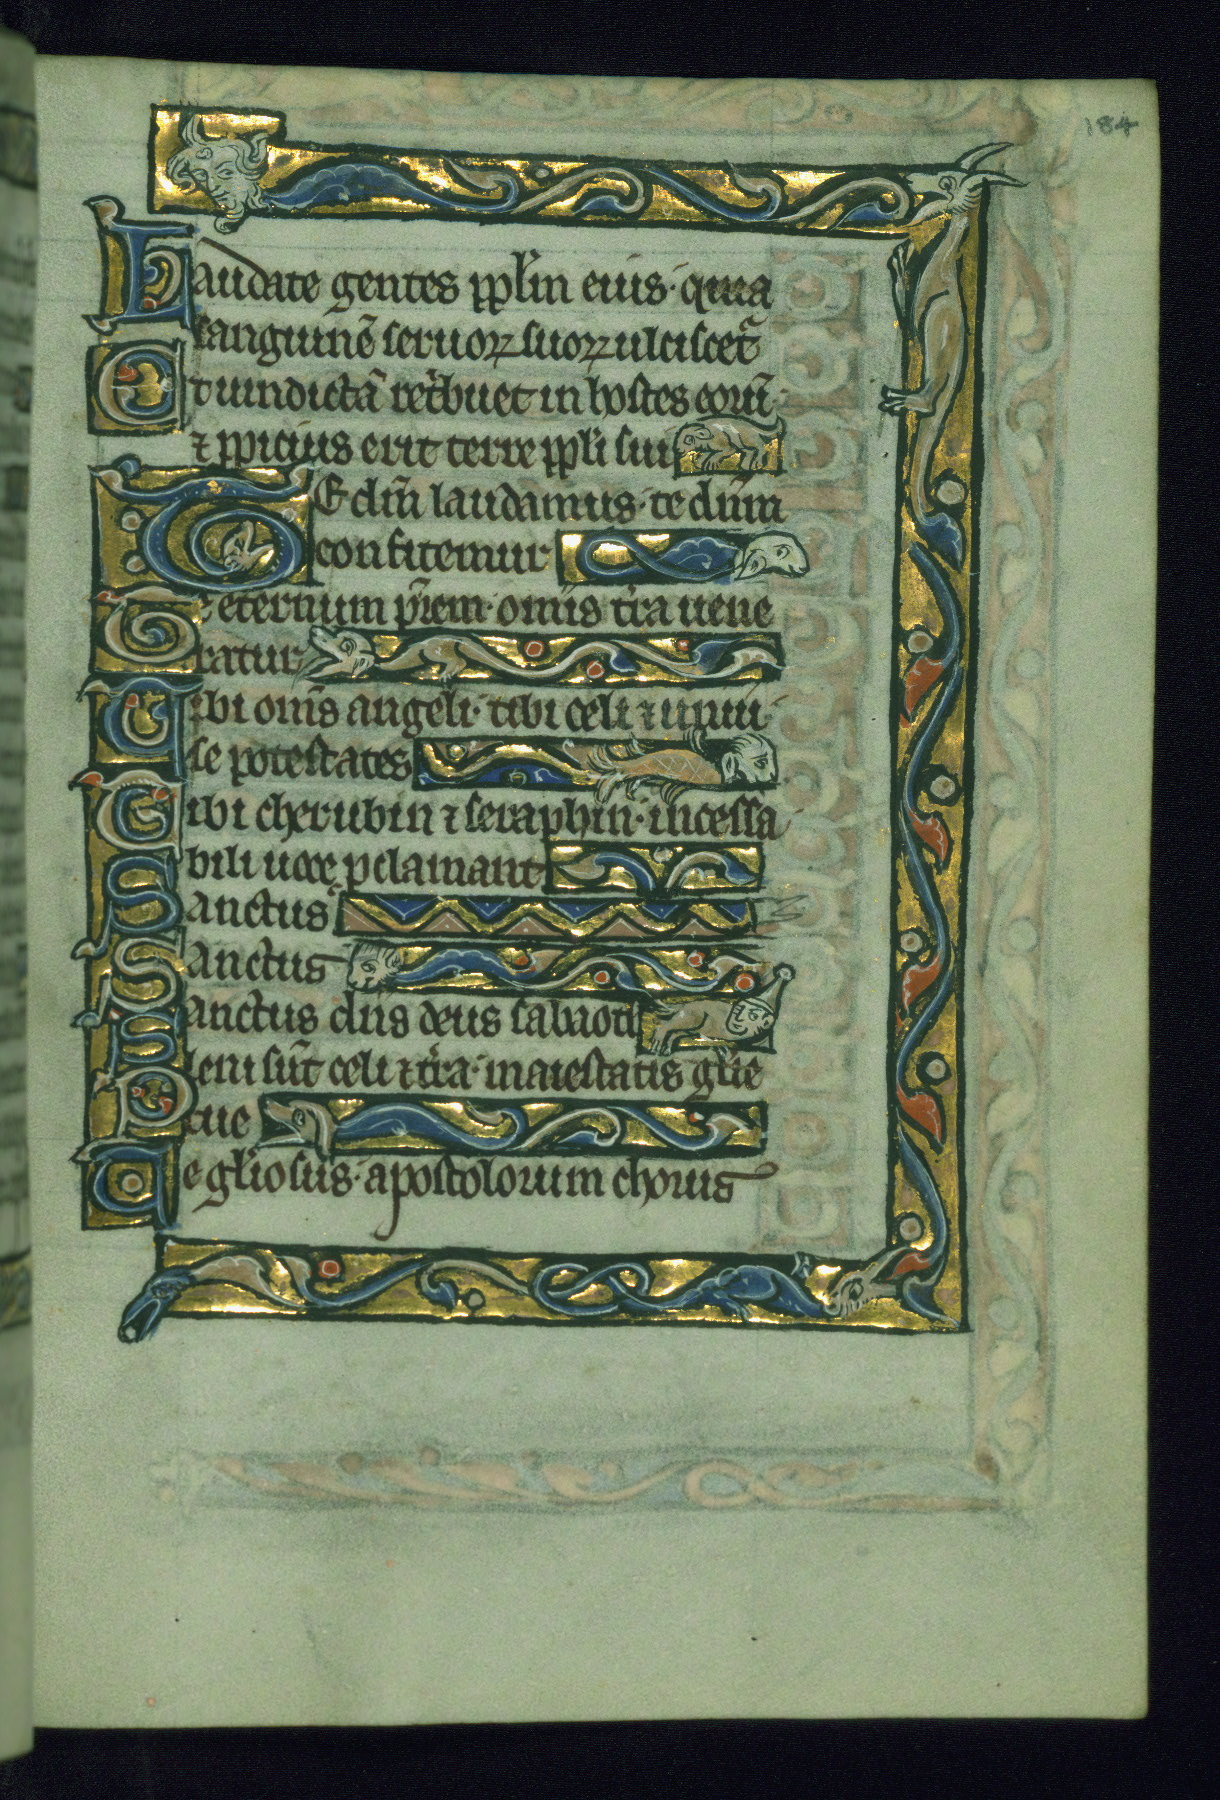 184
Laudate gentes pplm eius · quia
sanguinē seruoꝝ suoꝝ ulciscet᷑
Et uindictā ret͛buet in hostes eoꝝ ·
⁊ ppicius erit terre ppli sui
TE dm̄ laudamus · te dn̄m
confitemur
Te eternum pr̄em · om̄is t͛ra uene
ratur
Tibi om̄s angeli · tibi celi ⁊ uniu͛
se potestates
Tibi cherubin ⁊ seraphin · incessa
bili uoce pclamant
Sanctus
Sanctus
Sanctus dn̄s deus sabaoth
Pleni sūt celi ⁊ t͛ra · maiestatis gl̄e
tue
Te gl̄iosus · apostolorum chorus